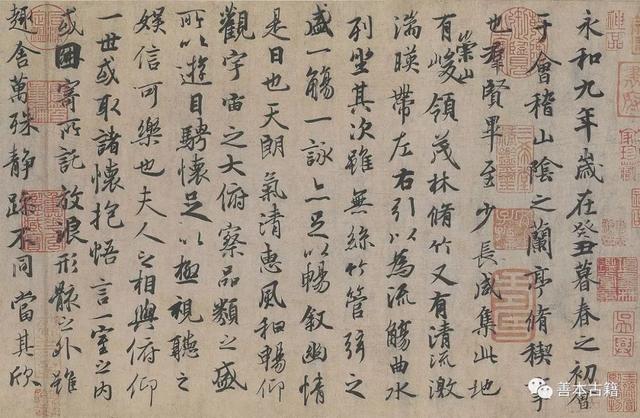 永和九年歲在癸丑暮春之初會
于會稽山陰之蘭亭脩稧事
也羣賢畢至少長咸集此地
有崇山峻領茂林脩竹又有清流激
湍暎帶左右引以為流觴曲水
列坐其次雖無絲竹管弦之
盛一觴一詠亦足以暢敘幽情
是日也天朗氣清惠風和暢仰
觀宇宙之大俯察品類之盛
所以遊目騁懷足以極視聽之
娛信可樂也夫人之相與俯仰
一世或取諸懷抱悟言一室之內
或因寄所託放浪形骸之外雖
趣舍萬殊靜躁不同當其欣
善本古籍